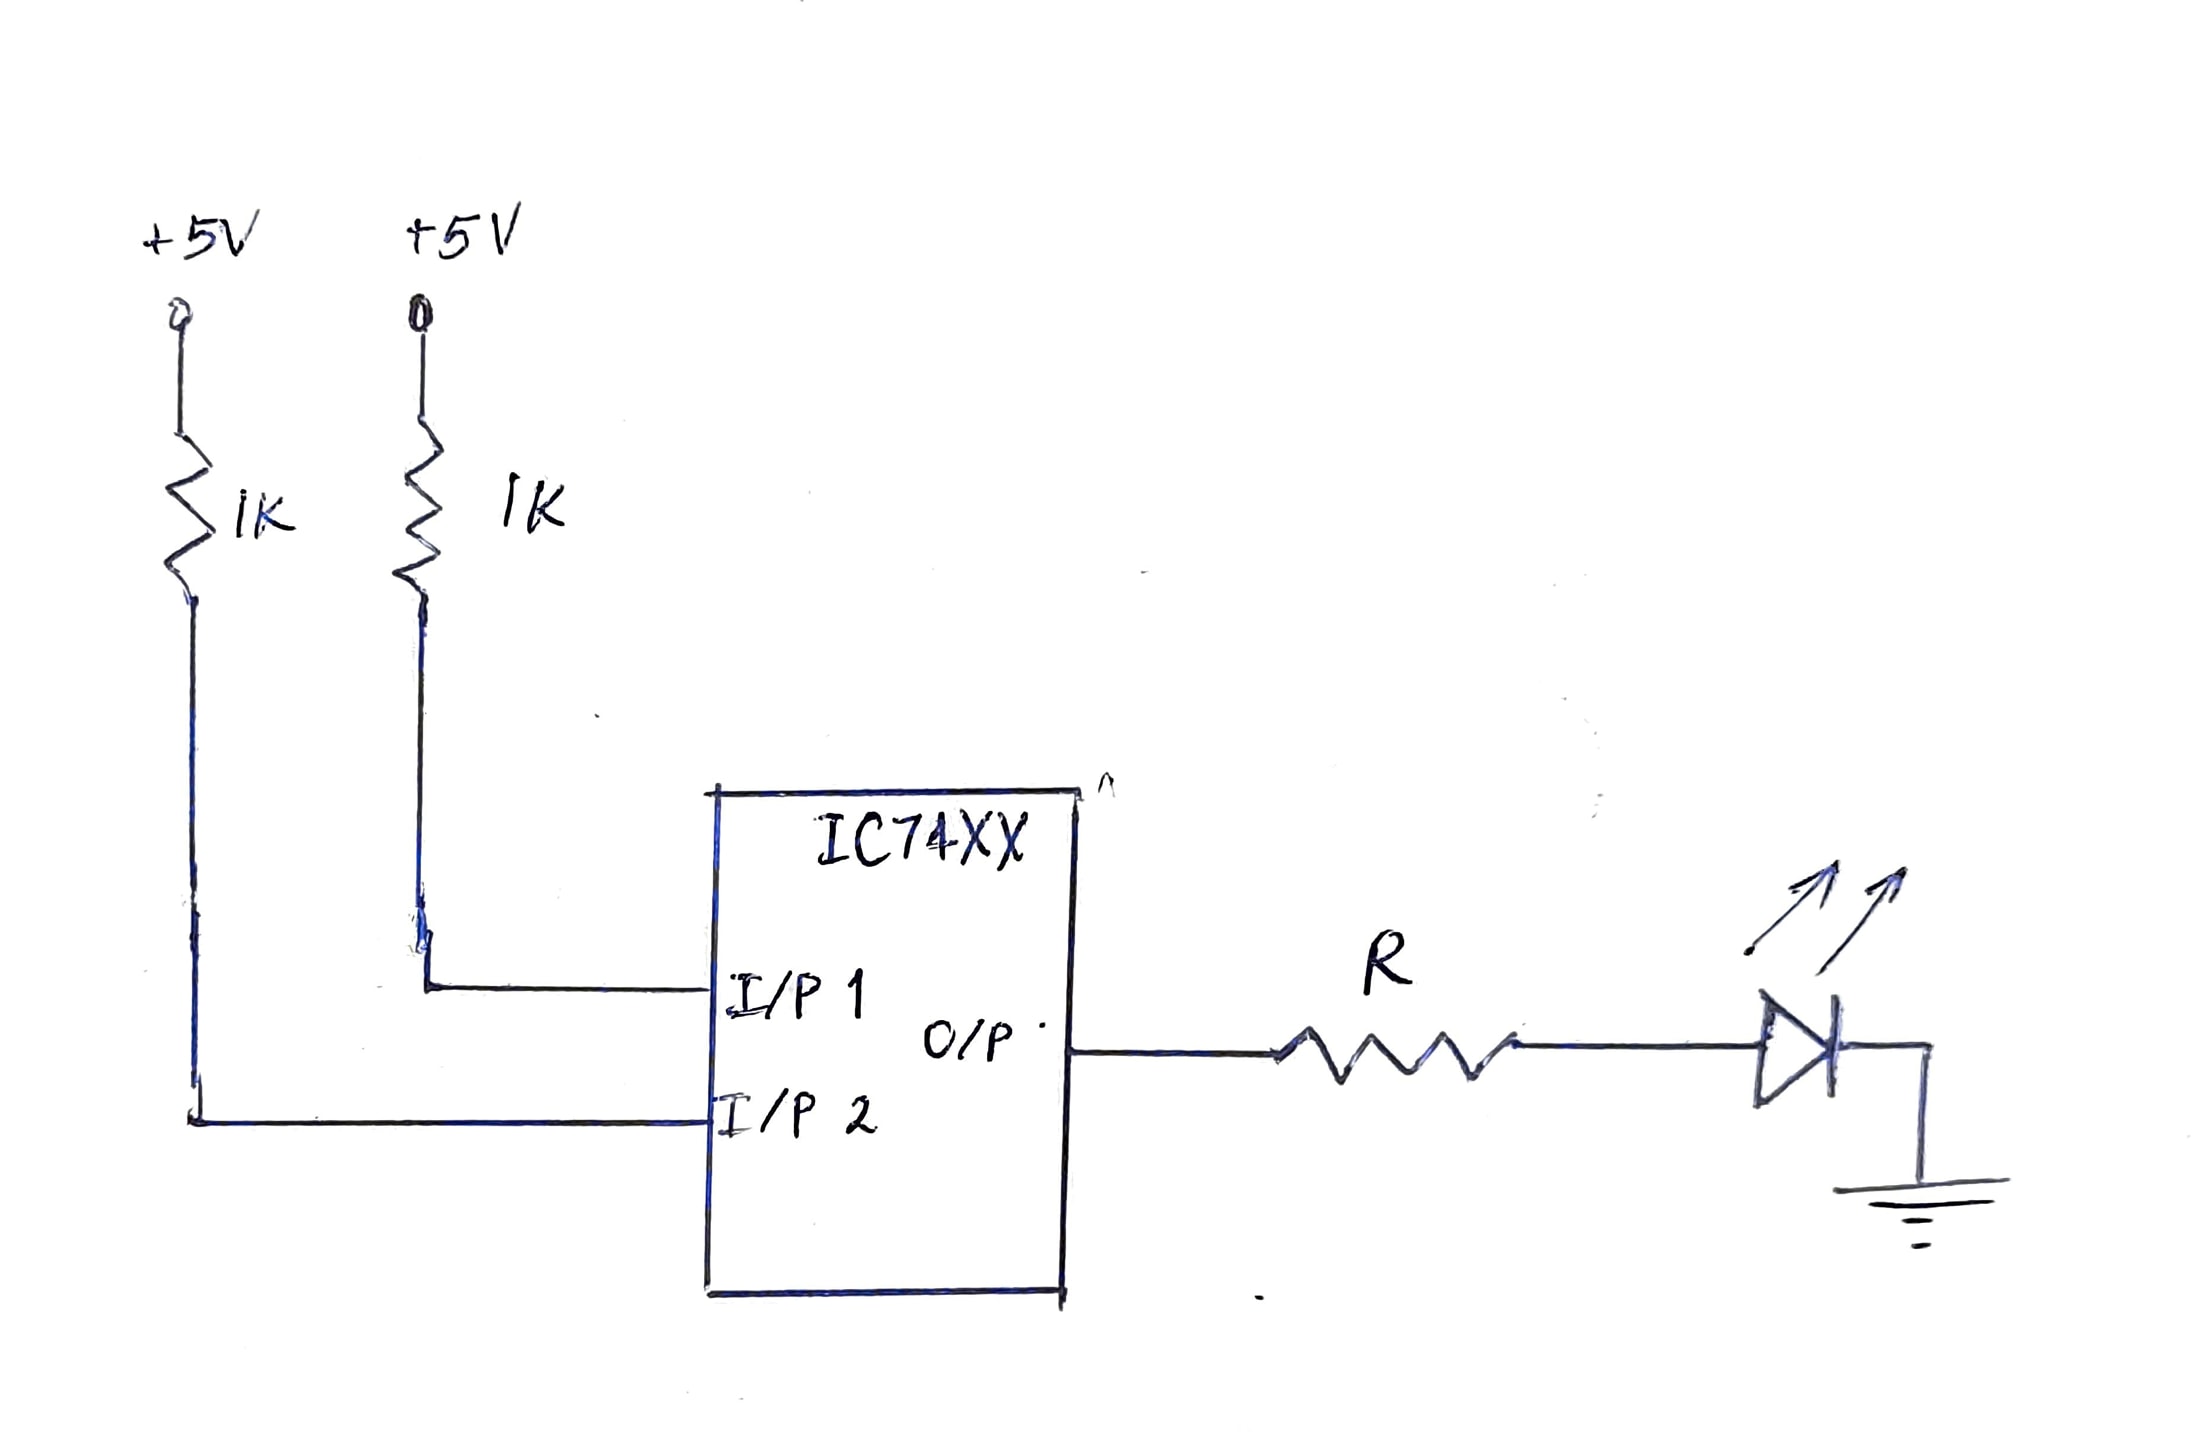 +5V +5V
1K 1K
IC74XX
I/P 1
O/P
I/P 2
R